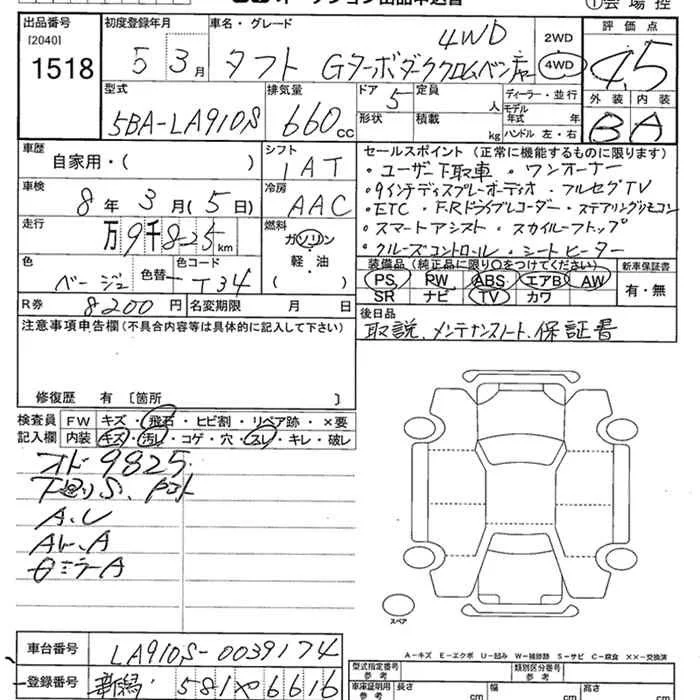 オークション出品申込書
①会場控
出品番号 初度登録年月 車名・グレード 評価点
[2040]
1518
5 3月
タフト Gターボダーククロムベンチャー 4WD
2WD
4WD
4.5
型式 排気量 ドア 定員 ディーラー・並行 外装 内装
5BA-LA910S 660cc 5 人 モデル年式 年 B A
形状 積載 kg ハンドル 左・右
車歴 シフト セールスポイント (正常に機能するものに限ります)
自家用・( ) IAT ・ユーザー下取車 ・ワンオーナー
車検 冷房 ・9インチディスプレーオーディオ ・フルセグTV
8年3月(5日) AAC ・ETC ・F.Rドライブレコーダー ・ステアリングリモコン
走行 燃料 ・スマートアシスト ・スカイルーフトップ
万9千825km ガソリン ・クルーズコントロール ・シートヒーター
軽・油
色 色替 色コード
ベージュ T34
( )
装備品(純正品に限り○をつけてください) 新車保証書
PS PW ABS エアB AW 有・無
SR ナビ TV カワ
R券 8200円 名変期限 月 日
後日品
取説、メンテナンスノート、保証書
注意事項申告欄(不具合内容等は具体的に記入して下さい)
修復歴 有 〔箇所 〕
検査員記入欄 FW キズ・飛石・ヒビ割・リペア跡・×要
内装 キズ・汚レ・コゲ・穴・スレ・キレ・破レ
オド 9825
A.U
A
ミラーA
スペア
A-キズ E-エクボ U-凹み W-補修跡 S-サビ C-腐食 ××-交換済
車台番号 LA910S-0039174
登録番号 新潟 581 や 6616
型式指定番号 参考 類別区分番号 参考
車庫証明用 参考 長さ cm 幅 cm 高さ cm